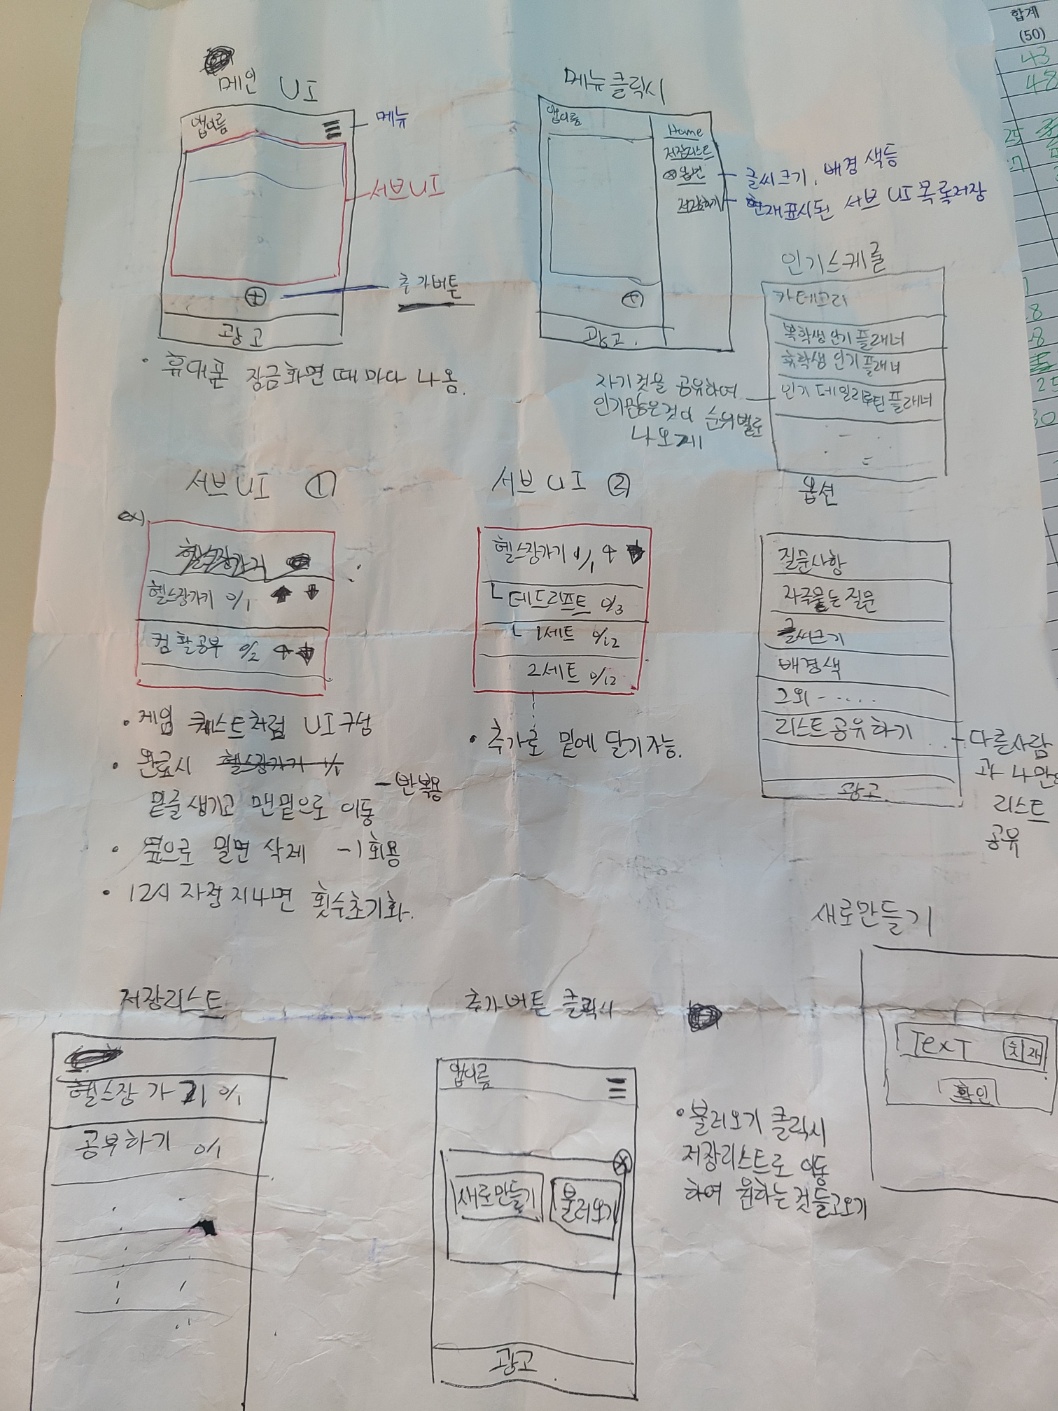 메인 UI
앱이름
메뉴
서브 UI
추가버튼
광고
· 휴대폰 잠금화면 때마다 나옴.
메뉴 클릭시
앱이름
Home
저장리스트
옵션
저장하기
글씨크기, 배경 색등
현재 표시된 서브 UI 목록저장
광고
인기스케줄
카테고리
복학생 인기 플래너
휴학생 인기 플래너
인기 데일리루틴 플래너
자기것을 공유하여
순위별로
나오게
서브 UI ①
헬스장가기
헬스장가기 0/1
컴활공부 0/2
· 게임 퀘스트처럼 UI 구성
· 완료시 헬스장가기 1/1
밑줄생기고 맨밑으로 이동
-반복용
· 옆으로 밀면 삭제 -1회용
· 12시 자정 지나면 횟수초기화.
서브 UI ②
헬스장가기 0/1
ㄴ 데드리프트 0/3
ㄴ 1세트 0/12
2세트 0/12
· 추가로 밑에 달기가능.
옵션
질문사항
자주묻는 질문
글씨크기
배경색
그외 - ....
리스트 공유하기
광고
다른사람
과 나만의
리스트
공유
저장리스트
헬스장 가기 0/1
공부하기 0/1
추가버튼 클릭시
앱이름
새로만들기
불러오기
광고
· 불러오기 클릭시
저장리스트로 이동
하여 원하는 것들고오기
새로만들기
TexT
확인
합계
(50)
43
48
25